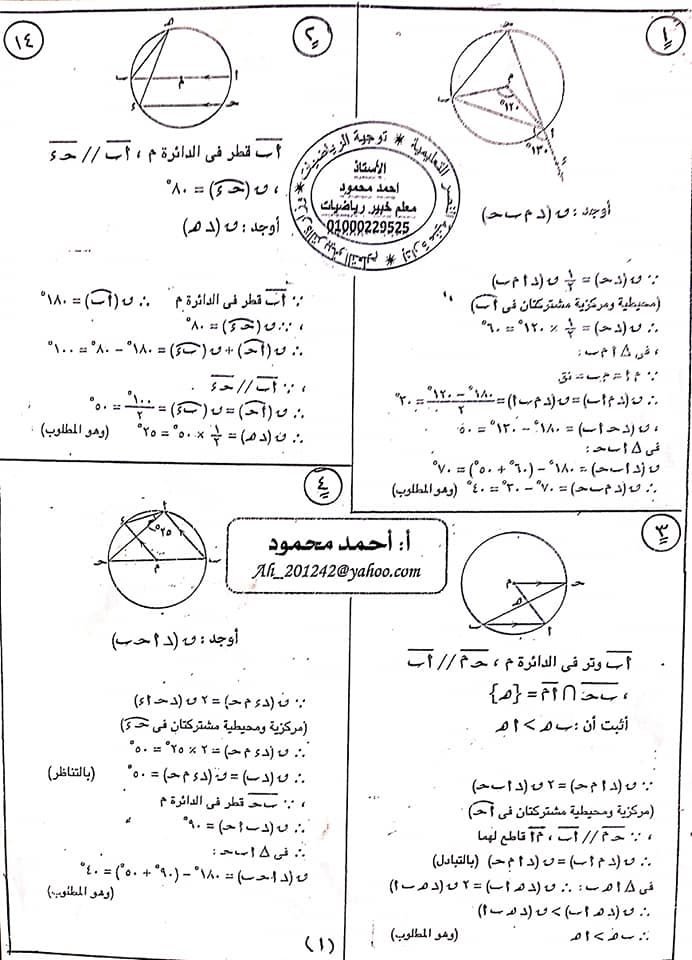 ١
١٢٠°
١٣٠°
أوجد : ق (د م ب ح)
∵ ق (د ح) = ١/٢ ق (د أ م ب)
(محيطية ومركزية مشتركتان فى أب)
∴ ق (د ح) = ١/٢ × ١٢٠° = ٦٠°
، فى Δ أ م ب :
∵ م أ = م ب = نق
∴ ق (د م أ ب) = ق (د م ب أ) = (١٨٠° – ١٢٠°)/٢ = ٣٠°
، ق (د ح أ ب) = ١٨٠° – ١٣٠° = ٥٠°
فى Δ أ ب ح :
ق (د أ ب ح) = ١٨٠° – (٦٠° + ٥٠°) = ٧٠°
∴ ق (د م ب ح) = ٧٠° – ٣٠° = ٤٠° (وهو المطلوب)
٢
١٤
أب قطر فى الدائرة م ، أب // حء
، ق (حء) = ٨٠°
أوجد : ق (د هـ)
∵ أب قطر فى الدائرة م ∴ ق (أب) = ١٨٠°
، ∵ ق (حء) = ٨٠°
∴ ق (أح) + ق (بء) = ١٨٠° – ٨٠° = ١٠٠°
، ∵ أب // حء
∴ ق (أح) = ق (بء) = ١٠٠°/٢ = ٥٠°
∴ ق (د هـ) = ١/٢ × ٥٠° = ٢٥° (وهو المطلوب)
توجية الرياضيات
الأستاذ
احمد محمود
معلم خبير رياضيات
01000229525
أ: أحمد محمود
Ah_201242@yahoo.com
٣
أب وتر فى الدائرة م ، حم // أب
، بح ∩ أم = {هـ}
أثبت أن : ب هـ > أ هـ
∵ ق (د أ م ح) = ٢ ق (د أ ب ح)
(مركزية ومحيطية مشتركتان فى أح)
، ∵ حم // أب ، مأ قاطع لهما
∴ ق (د م أ ب) = ق (د أ م ح) (بالتبادل)
فى Δ أ هـ ب : ∴ ق (د هـ أ ب) = ٢ ق (د هـ ب أ)
∴ ق (د هـ أ ب) > ق (د هـ ب أ)
∴ ب هـ > أ هـ (وهو المطلوب)
٤
٢٥°
أوجد : ق (د أ ح ب)
∵ ق (د ء م ح) = ٢ ق (د ح أ ء)
(مركزية ومحيطية مشتركتان فى حء)
∴ ق (د ء م ح) = ٢ × ٢٥° = ٥٠°
∴ ق (د ب) = ق (د ء م ح) = ٥٠° (بالتناظر)
، ∵ بح قطر فى الدائرة م
∴ ق (د ب أ ح) = ٩٠°
∴ فى Δ أ ب ح :
ق (د أ ح ب) = ١٨٠° – (٩٠° + ٥٠°) = ٤٠°
(وهو المطلوب)
(١)